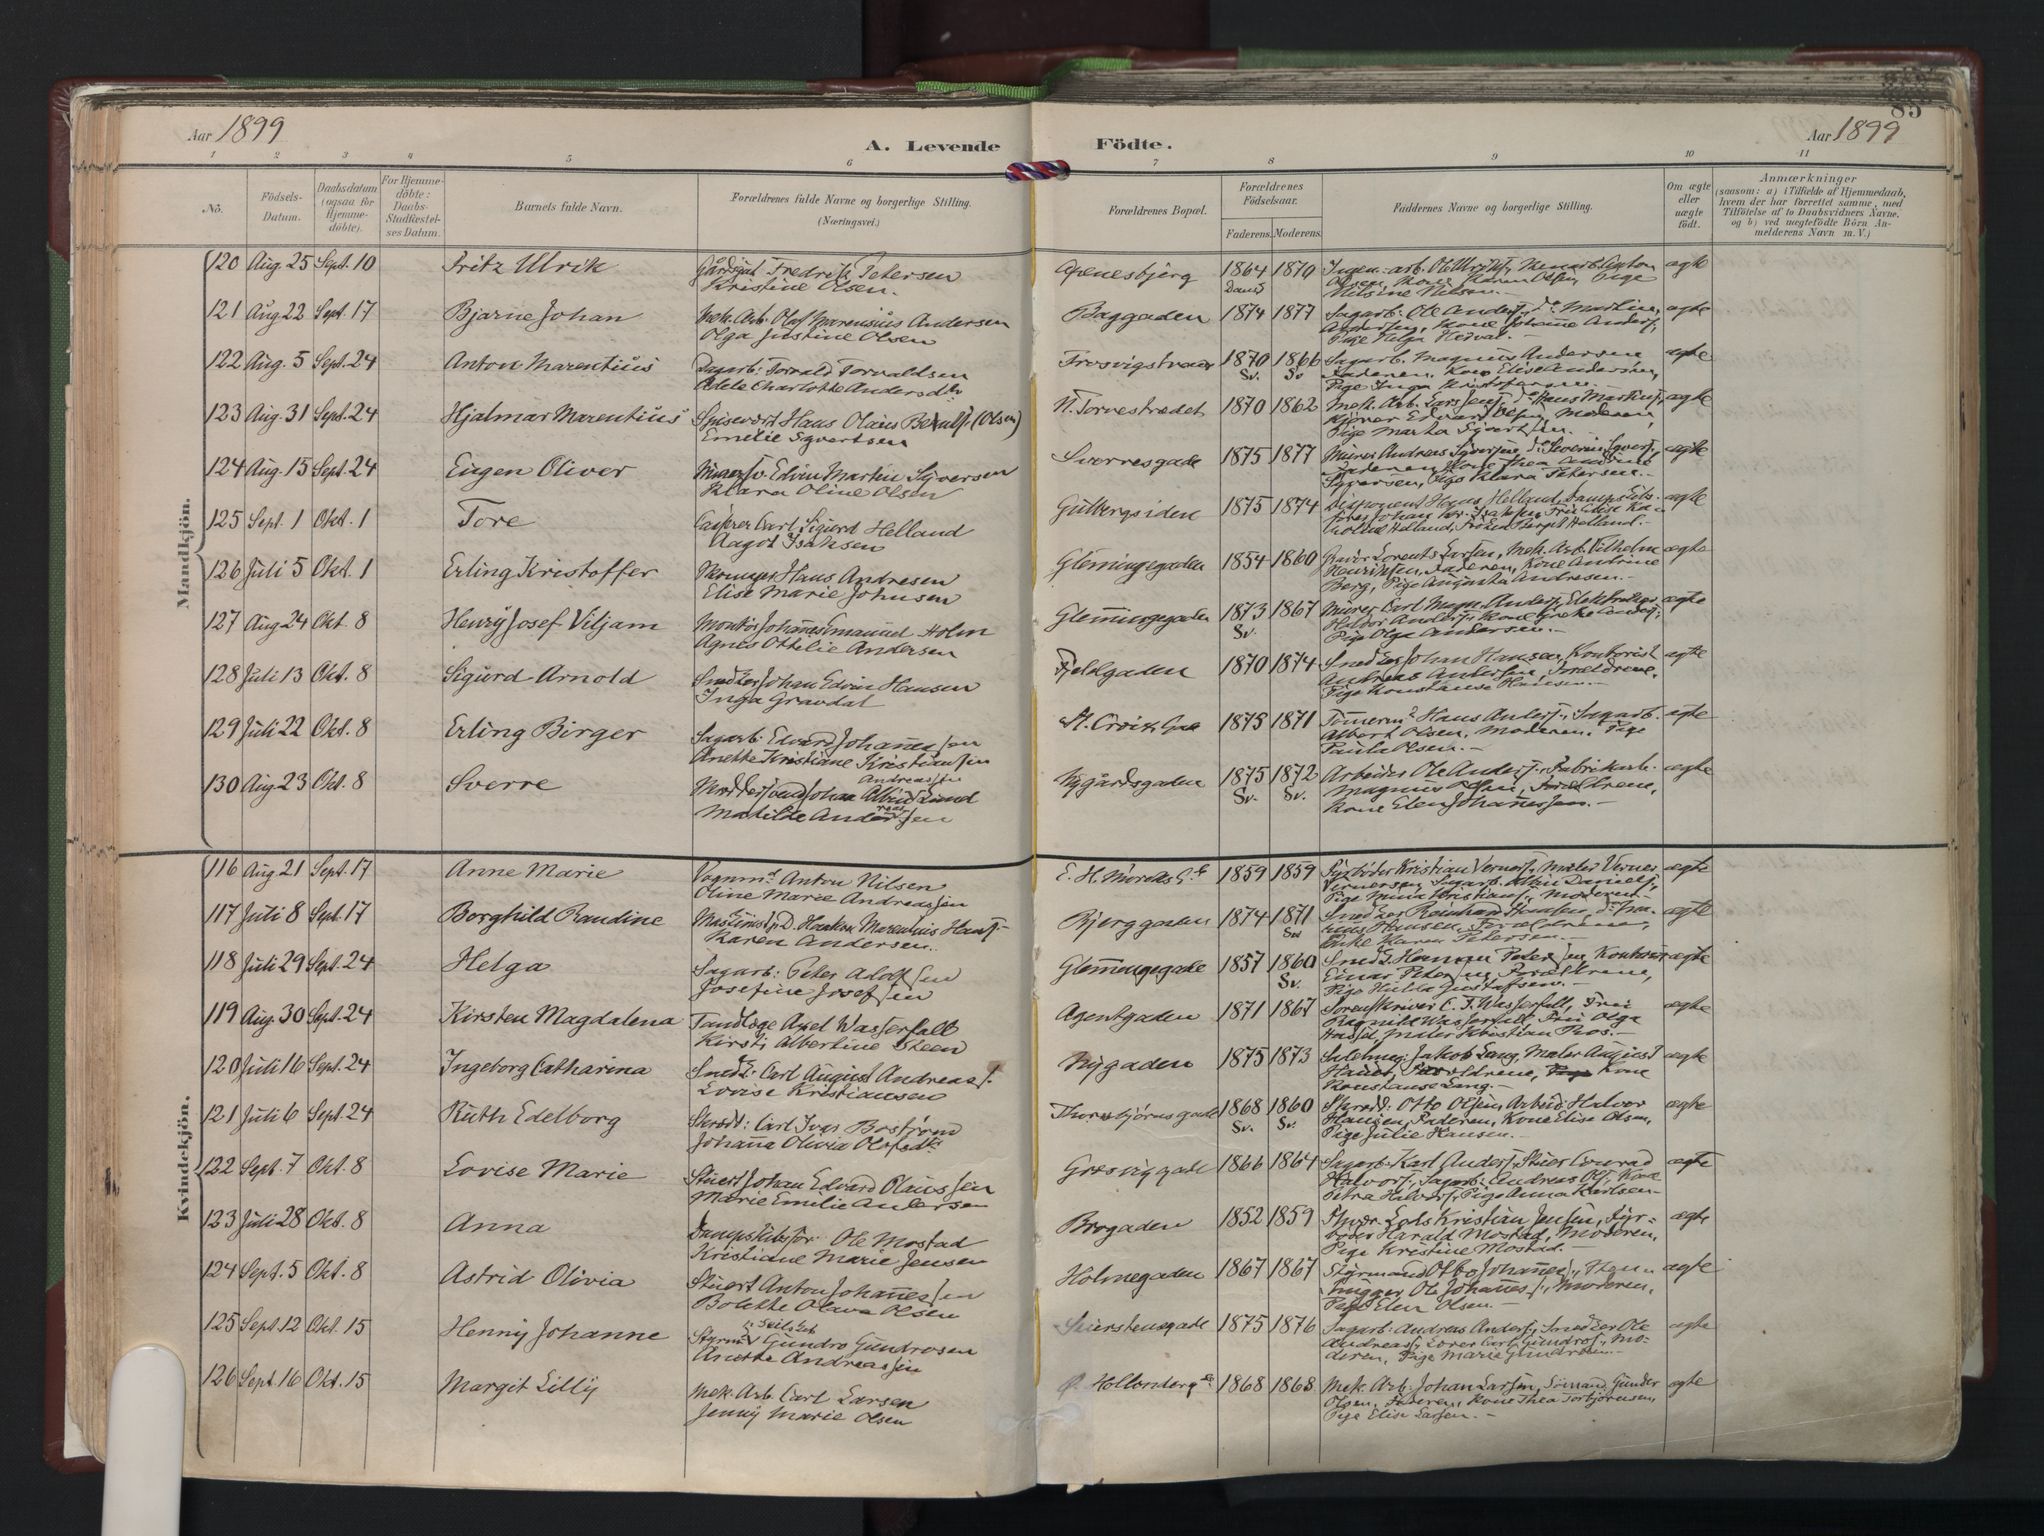 Aar 1899
A. Levende
Födte.
Aar 1899
85
1 2 3 4 5 6 7 8 9 10 11
Nô.
Födsels-Datum.
Daabsdatum (ogsaa for Hjemme-döbte).
For Hjemme-döbte: Daabs-Stadfæstel-ses Datum.
Barnets fulde Navn.
Forældrenes fulde Navne og borgerlige Stilling. (Næringsvei.)
Forældrenes Bopæl.
Forældrenes Födselsaar.
Faderens. Moderens.
Faddernes Navne og borgerlige Stilling.
Om ægte eller uægte födt.
Anmærkninger
(saasom: a) i Tilfælde af Hjemmedaab,
hvem der har forrettet samme, med
Tilföielse af to Daabsvidners Navne.
og b) ved uægtefödte Börn An-
melderens Navn m. V.)
Mandkjön.
120 Aug. 25 Sept. 10 Fritz Ulrik Fredrik Petersen
Kristine Olsen. Apenesbjerg 1864 1870 ægte
Dansk
121 Aug. 22 Sept. 17 Bjarne Johan Mek. Arb. Olaf Marensius Andersen
Olga Justine Olsen Baggaden 1874 1877 Sagarb. Ole Anders., do Martin
Andersen, Kone Johanne Anders.,
Pige Helga Hedval. ægte
122 Aug. 5 Sept. 24 Anton Marentius Dagarb: Torvald Torvaldsen
Adele Charlotte Andersdtr 1870 1866 Sagarb. Magnus Andersen
Sv. Sv Faderen, Kone Elise Andersen,
Pige Inga Kristofersen. ægte
123 Aug. 31 Sept. 24 Hjalmar Marentius Spisevært Hans Olaus (Olsen)
Emelie Syvertsen N. Tornestrædet 1870 1862 Mek. Arb. Moderen,
Pige Marta Syvertsen. ægte
124 Aug. 15 Sept. 24 Eugen Oliver Edvin Martin Syversen
Klara Oline Olsen Sverresgade 1875 1877 Murer Andreas Syversen, do Severin Syvers.,
Faderen, Kone Thea
Syversen, Pige Klara Petersen. ægte
125 Sept. 1 Okt. 1 Tore Carl Sigurd Helland
Aagot Isaksen Gulbergsiden 1875 1874 Disponent Hans Helland, Dampskibs-
fører Johan Isaksen, Frk Elise
Helland, Frøken Birgit Helland. ægte
126 Juli 5 Okt. 1 Erling Kristoffer Hans Andresen
Elise Marie Johnsen Glemmingegaden 1854 1860 Lorents Larsen, Mek. Arb. Vilhelm
Henriksen, Faderen, Kone Andrine
Berg, Pige Augusta Andresen. ægte
127 Aug. 24 Okt. 8 Henry Josef Viljam Montør Johannes Emanuel Holm
Agnes Ottelie Andersen Glemmingegaden 1873 1867 Murer Carl Magn. Anders.,
Sv. Haldor Anders., Kone
Pige Olga Andersen. ægte
128 Juli 13 Okt. 8 Sigurd Arnold Snedker Johan Edvin Hansen
Inga Gravdal Fjeldgaden 1870 1874 Snedker Johan Hansen, Kontorist
Andreas Andersen, Forældrene,
Pige Konstanse Hansen. ægte
129 Juli 22 Okt. 8 Erling Birger Sagarb. Edvard Johannessen
Anette Kristiane Kristiansen St. Croix Ga 1875 1871 Tømerm. Hans Anders., Sagarb.
Albert Olsen, Moderen, Pige
Paula Olsen. ægte
130 Aug. 23 Okt. 8 Sverre Johan Albin Lund
Andreassen
Matilde Andersen Nygårdsgaden 1875 1872 Arbeider Ole Anders., Fabrikarb.
Sv. Sv. Magnus Olsen, Forældrene,
Kone Elen Johannessen. ægte
Kvindekjön.
116 Aug. 21 Sept. 17 Anne Marie Vognmd Anton Nilsen
Oline Marie Andreassen 1859 1859 Fyrbøder Kristian Verners., Maler Verner
Vernersen, Sagarb. Albin Daniels.,
Pige Mina Kristians., Moderen. ægte
117 Juli 8 Sept. 17 Borghild Raudine Haakon Marentius Hans.
Karen Andersen. Bjerggaden 1874 1871 Snedker
Sv Hansen, Forældrene,
Enke Karen Petersen. ægte
118 Juli 29 Sept. 24 Helga Sagarb: Peter Adolfsen
Josefine Josefsen Glemmengegade 1857 1860 Snedk. Herman Petersen, Kontorist
Sv. Einar Petersen, Forældrene,
Pige Hulda Gustafsen. ægte
119 Aug. 30 Sept. 24 Kirsten Magdalena Tandlæge Axel Wasserfall
Kirsti Albertine Steen Agentgaden 1871 1867 Sorenskriver C. F. Wasserfall, Frk
Ragnhild Wasserfall, Frk Olga
Kristian Roos. ægte
120 Juli 16 Sept. 24 Ingeborg Catharina Snedk. Carl August Andreas.
Lovise Kristiansen Nygaden 1875 1873 Jakob Lang, Maler August
Forældrene, Kone
Konstanse Lang. ægte
121 Juli 6 Sept. 24 Ruth Edelborg Skrædd: Carl Ivar Boström
Johanna Olivia Olofsdtr Thorsbjørnsgade 1868 1860 Skrædd: Otto Olsen, Arbeid. Halvor
Sv. Sv. Hansen, Faderen, Kone Elise Olsen,
Pige Julie Hansen. ægte
122 Sept. 7 Okt. 8 Lovise Marie Stuert Johan Edvard Olaussen
Marie Emelie Andersen Gresviggade 1866 1864 Sagarb. Karl Anders., Stuer Conrad
Halvors., Sagarb: Andreas Ols., Kone
Petra Halvors., Pige Anna Karlsen. ægte
123 Juli 28 Okt. 8 Anna Dampskibsfør. Ole Mostad
Kristiane Marie Jensen Brogaden 1852 1859 Lods Kristian Jensen, Fyr-
bøder Harald Mostad, Moderen,
Pige Kristine Mostad. ægte
124 Sept. 5 Okt. 8 Astrid Olivia Stuert Anton Johannessen
Bolette Olava Olsen Holmegaden 1867 1867 Styrmand Otto Johannes., Sten-
hugger Ole Johannes., Moderen,
Pige Elen Olsen. ægte
125 Sept. 12 Okt. 15 Henny Johanne Styrmd Seilskib Gundro Gundrosen
Anette Andreassen 1875 1876 Sagarb: Andreas Anders., Snedker Ole
Andreas., Carl Gundros., Mo-
deren, Pige Marie Gundrosen. ægte
126 Sept. 16 Okt. 15 Margit Lilly Mek. Arb. Carl Larsen
Jenny Marie Olsen 1868 1868 Mek. Arb. Johan Larsen, Sømand Gunder
Olsen, Faderen, Kone Thea Torbjørnsen,
Pige Elise Larsen. ægte